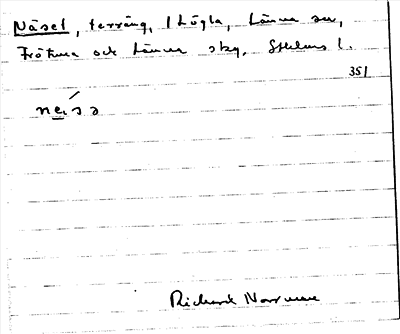 Näsel, terräng, 1 Lögla, Länna sn,
Frötuna och Länna skg, Sthlms l.
351
Richard Norrman